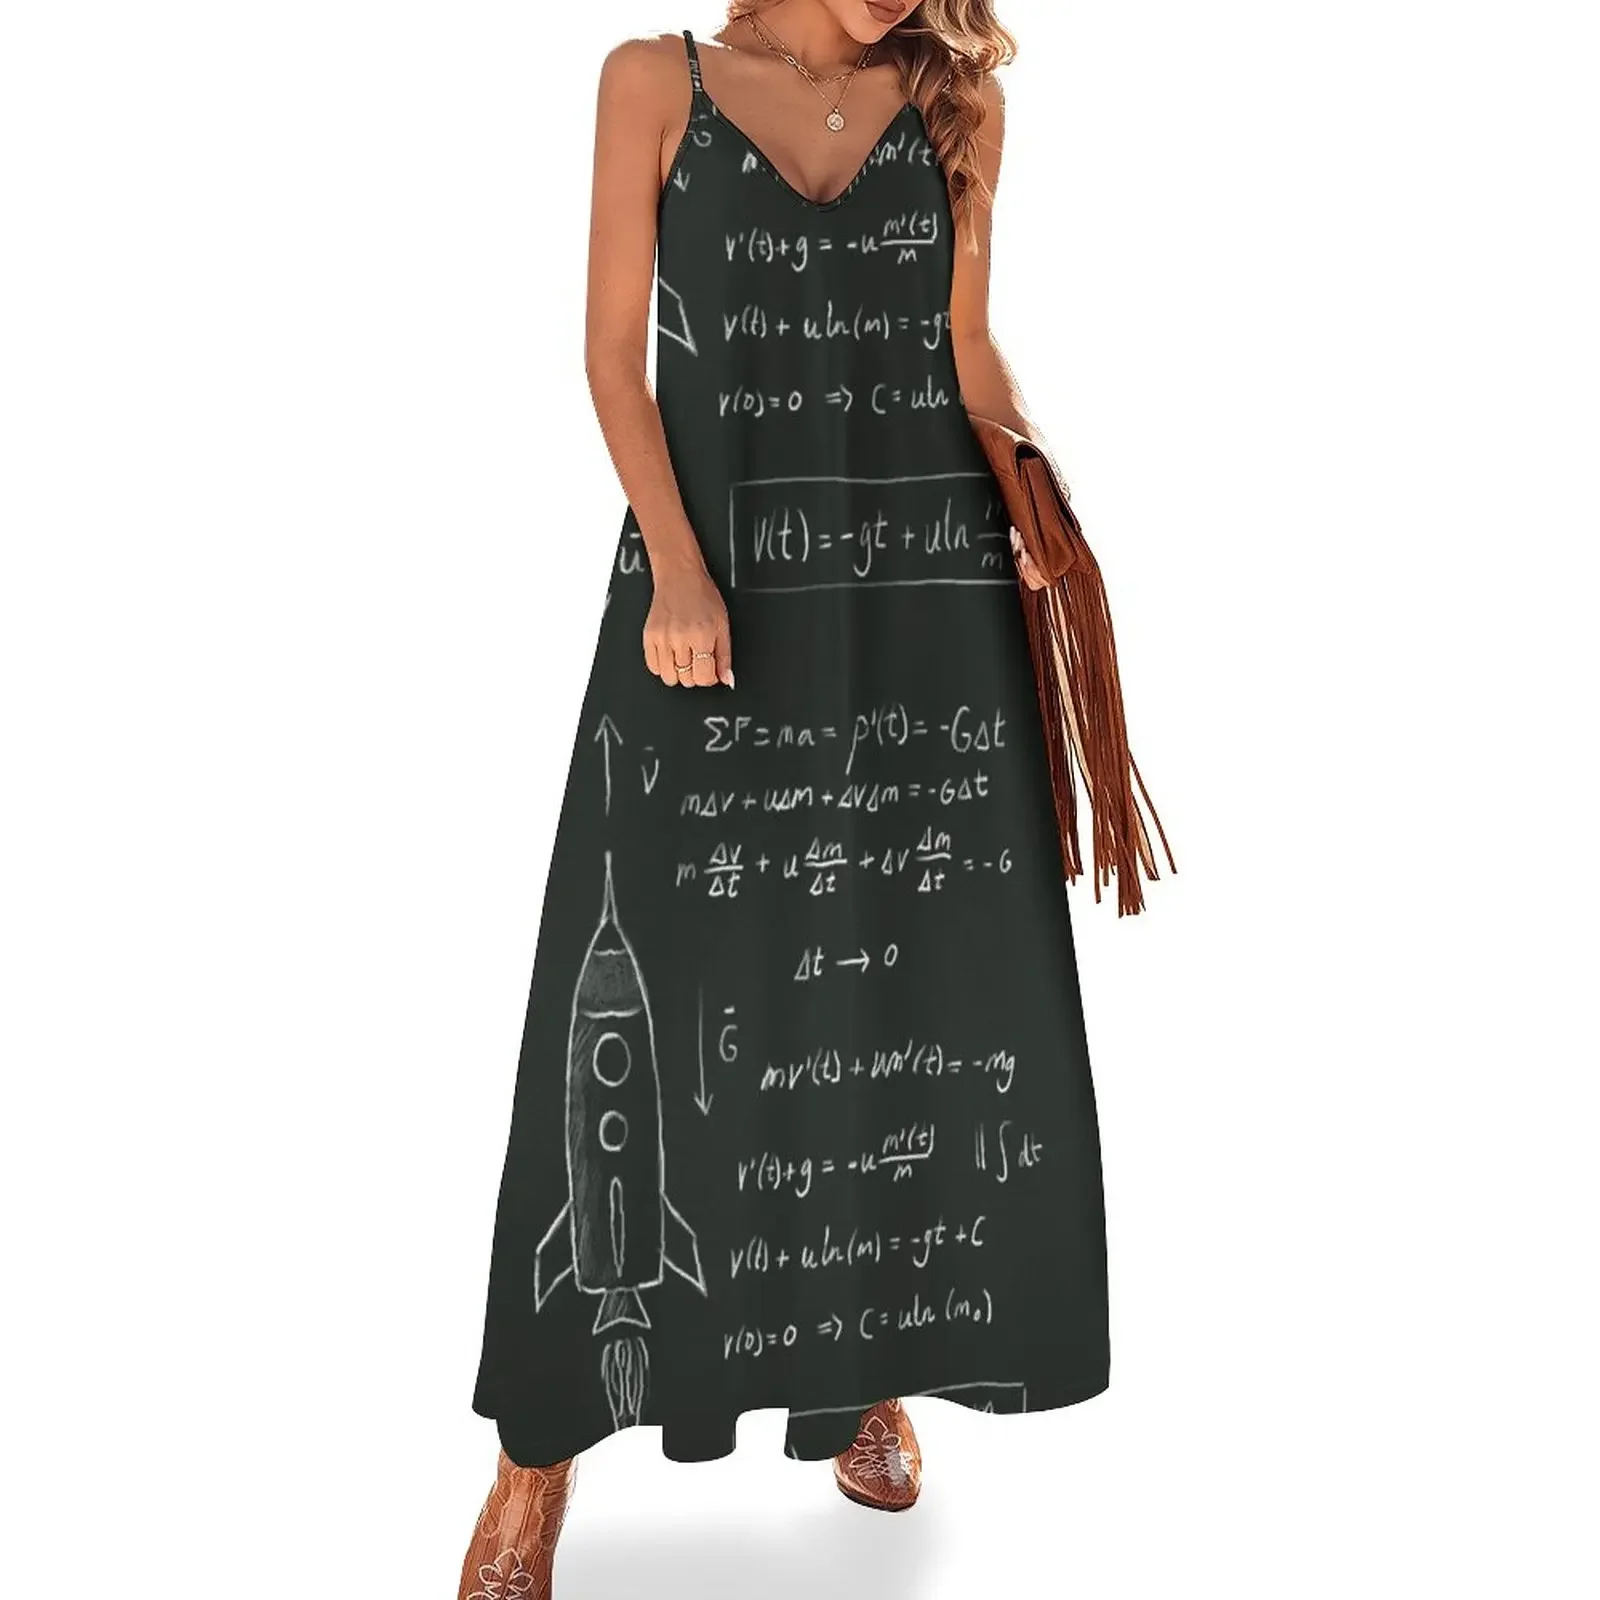 G
m'(t)
v'(t)+g = -u m'(t)/m
v(t) + u ln(m) = -gt
v(0)=0 => C = u ln
v(t) = -gt + u ln m/m
ū
ΣF = ma = p'(t) = -GΔt
v̄
mΔv + uΔm + ΔvΔm = -GΔt
m Δv/Δt + u Δm/Δt + Δv Δm/Δt = -G
Δt → 0
Ḡ
mv'(t) + um'(t) = -mg
v'(t)+g = -u m'(t)/m || ∫ dt
v(t) + u ln(m) = -gt + C
v(0)=0 => C = u ln (m₀)